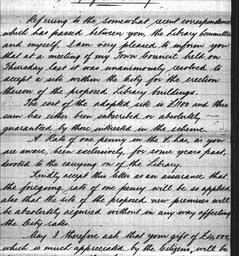 Referring to the somewhat recent correspondence
which has passed between you, the Library Committee
and myself I am very pleased to inform you
that at a meeting of my Town Council held on
Thursday last it was unanimously resolved to
accept a site within the City for the erection
thereon of the proposed Library buildings.
The cost of the adopted site is £2100 and this
sum has either been subscribed or absolutely
guaranteed by those interested in the scheme.
A Rate of one penny in the £ has, as you
are aware, been exclusively, for some years past,
devoted to the carrying on of the Library.
Kindly accept this letter as an assurance that
the foregoing rate of one penny will be so applied
also that the site of the proposed new premises will
be absolutely acquired without in any way affecting
the City rate.
May I therefore ask that your gift of
which is much appreciated by the Citizens, will be